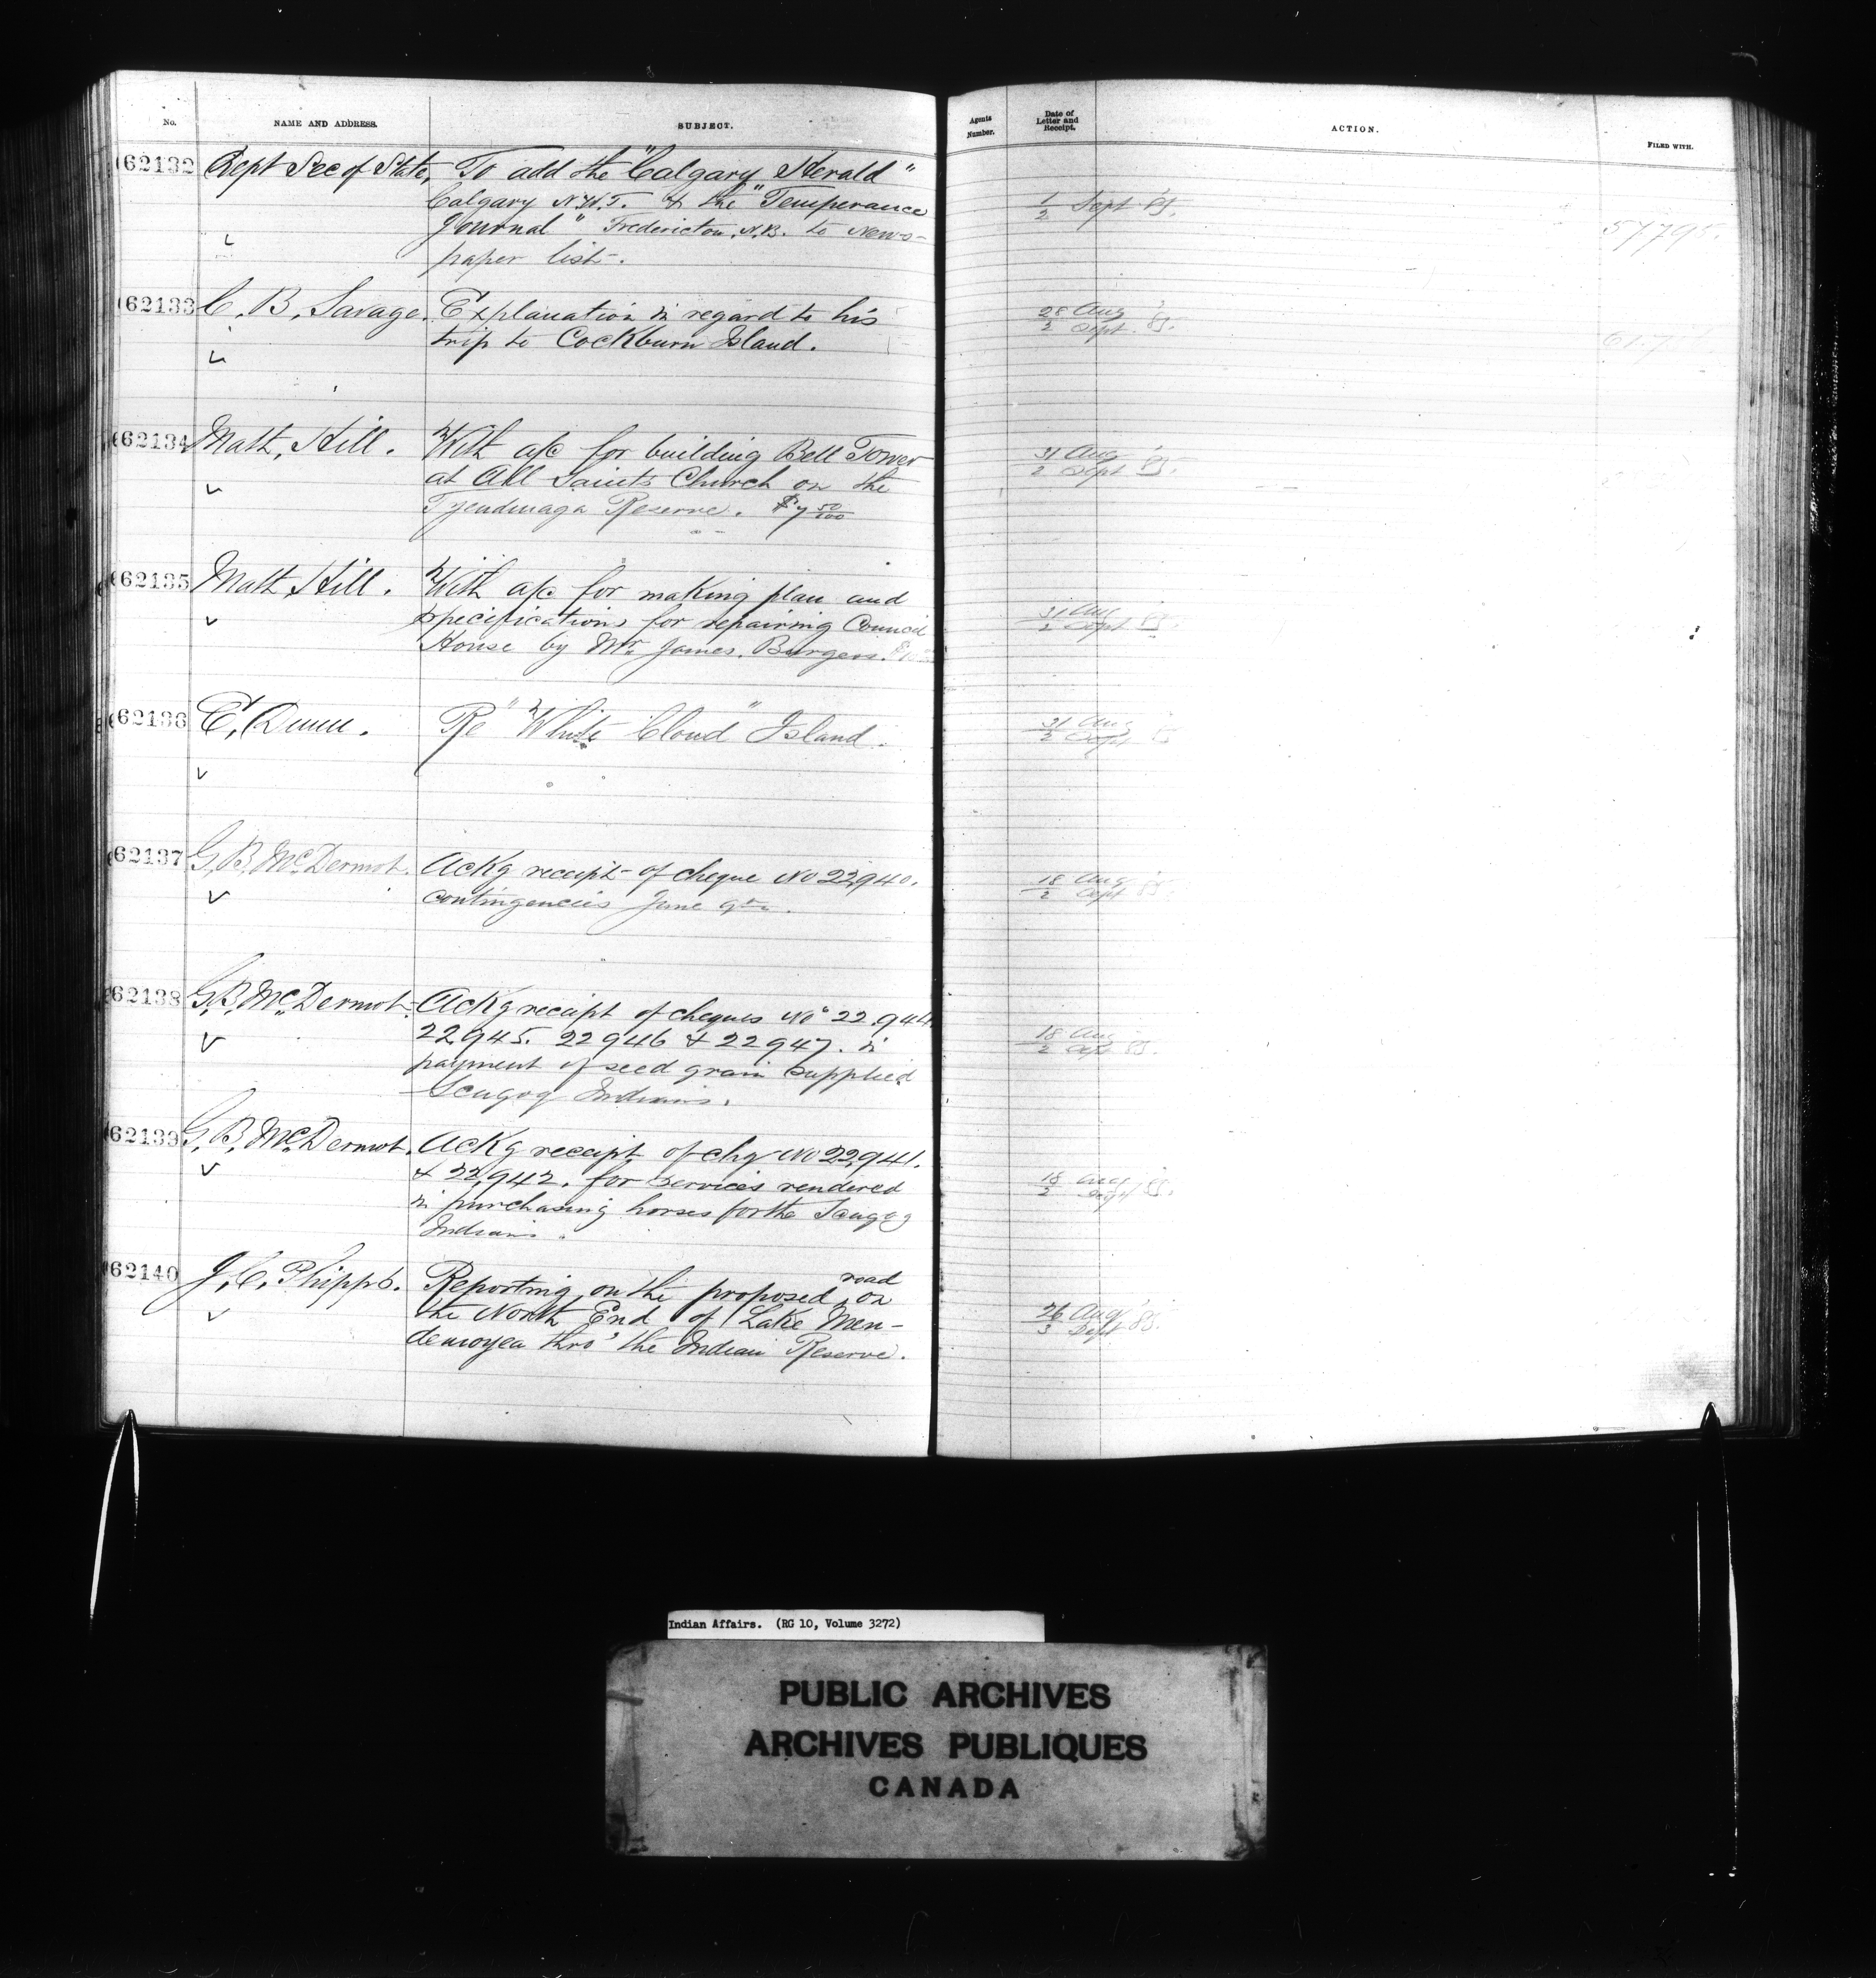 No. NAME AND ADDRESS. SUBJECT. Agents Number. Date of Letter and Receipt. ACTION. FILED WITH.
62132 Dept Sec of State, To add the "Calgary Herald" 1/2 Sept. 85.
Calgary N.W.T. & the "Temperance 57.795.
Journal" Fredericton, N.B. to News-
paper list.
62133 C. B. Savage. Explanation in regard to his 28 Aug / 2 Sept. 85.
trip to Cockburn Island.
62134 Matt, Hill. With a/c for building Bell Tower 31 Aug / 2 Sept 85.
at All Saints Church on the
Tyendinaga Reserve. $7 50/100
62135 Matt Hill. With a/c for making plan and 31 Aug / 2 Sept 85.
specifications for repairing Council
House by Mr James. Burgess.
62136 E. Dunn. Re "White Cloud" Island. 31 Aug / 2 Sept 85
62137 G. B. McDermot. Ackg receipt of cheque No 22940. 18 Aug / 2 Sept 85.
contingencies June qtr.
62138 G. B. McDermot. Ackg receipt of cheques Nos 22.944 18 Aug / 2 Sept 85.
22945. 22946 & 22947. in
payment of seed grain supplied
Scugog Indians.
62139 G. B. McDermot. Ackg receipt of chq No 22941. 18 Aug / 2 Sept 85.
& 22942. for services rendered
in purchasing horses for the Scugog
Indians.
62140 J. C. Phipps. Reporting on the proposed road on 26 Aug / 3 Sept 85.
the North End of Lake Men-
demoyea thro' the Indian Reserve.
Indian Affairs. (RG 10, Volume 3272)
PUBLIC ARCHIVES
ARCHIVES PUBLIQUES
CANADA